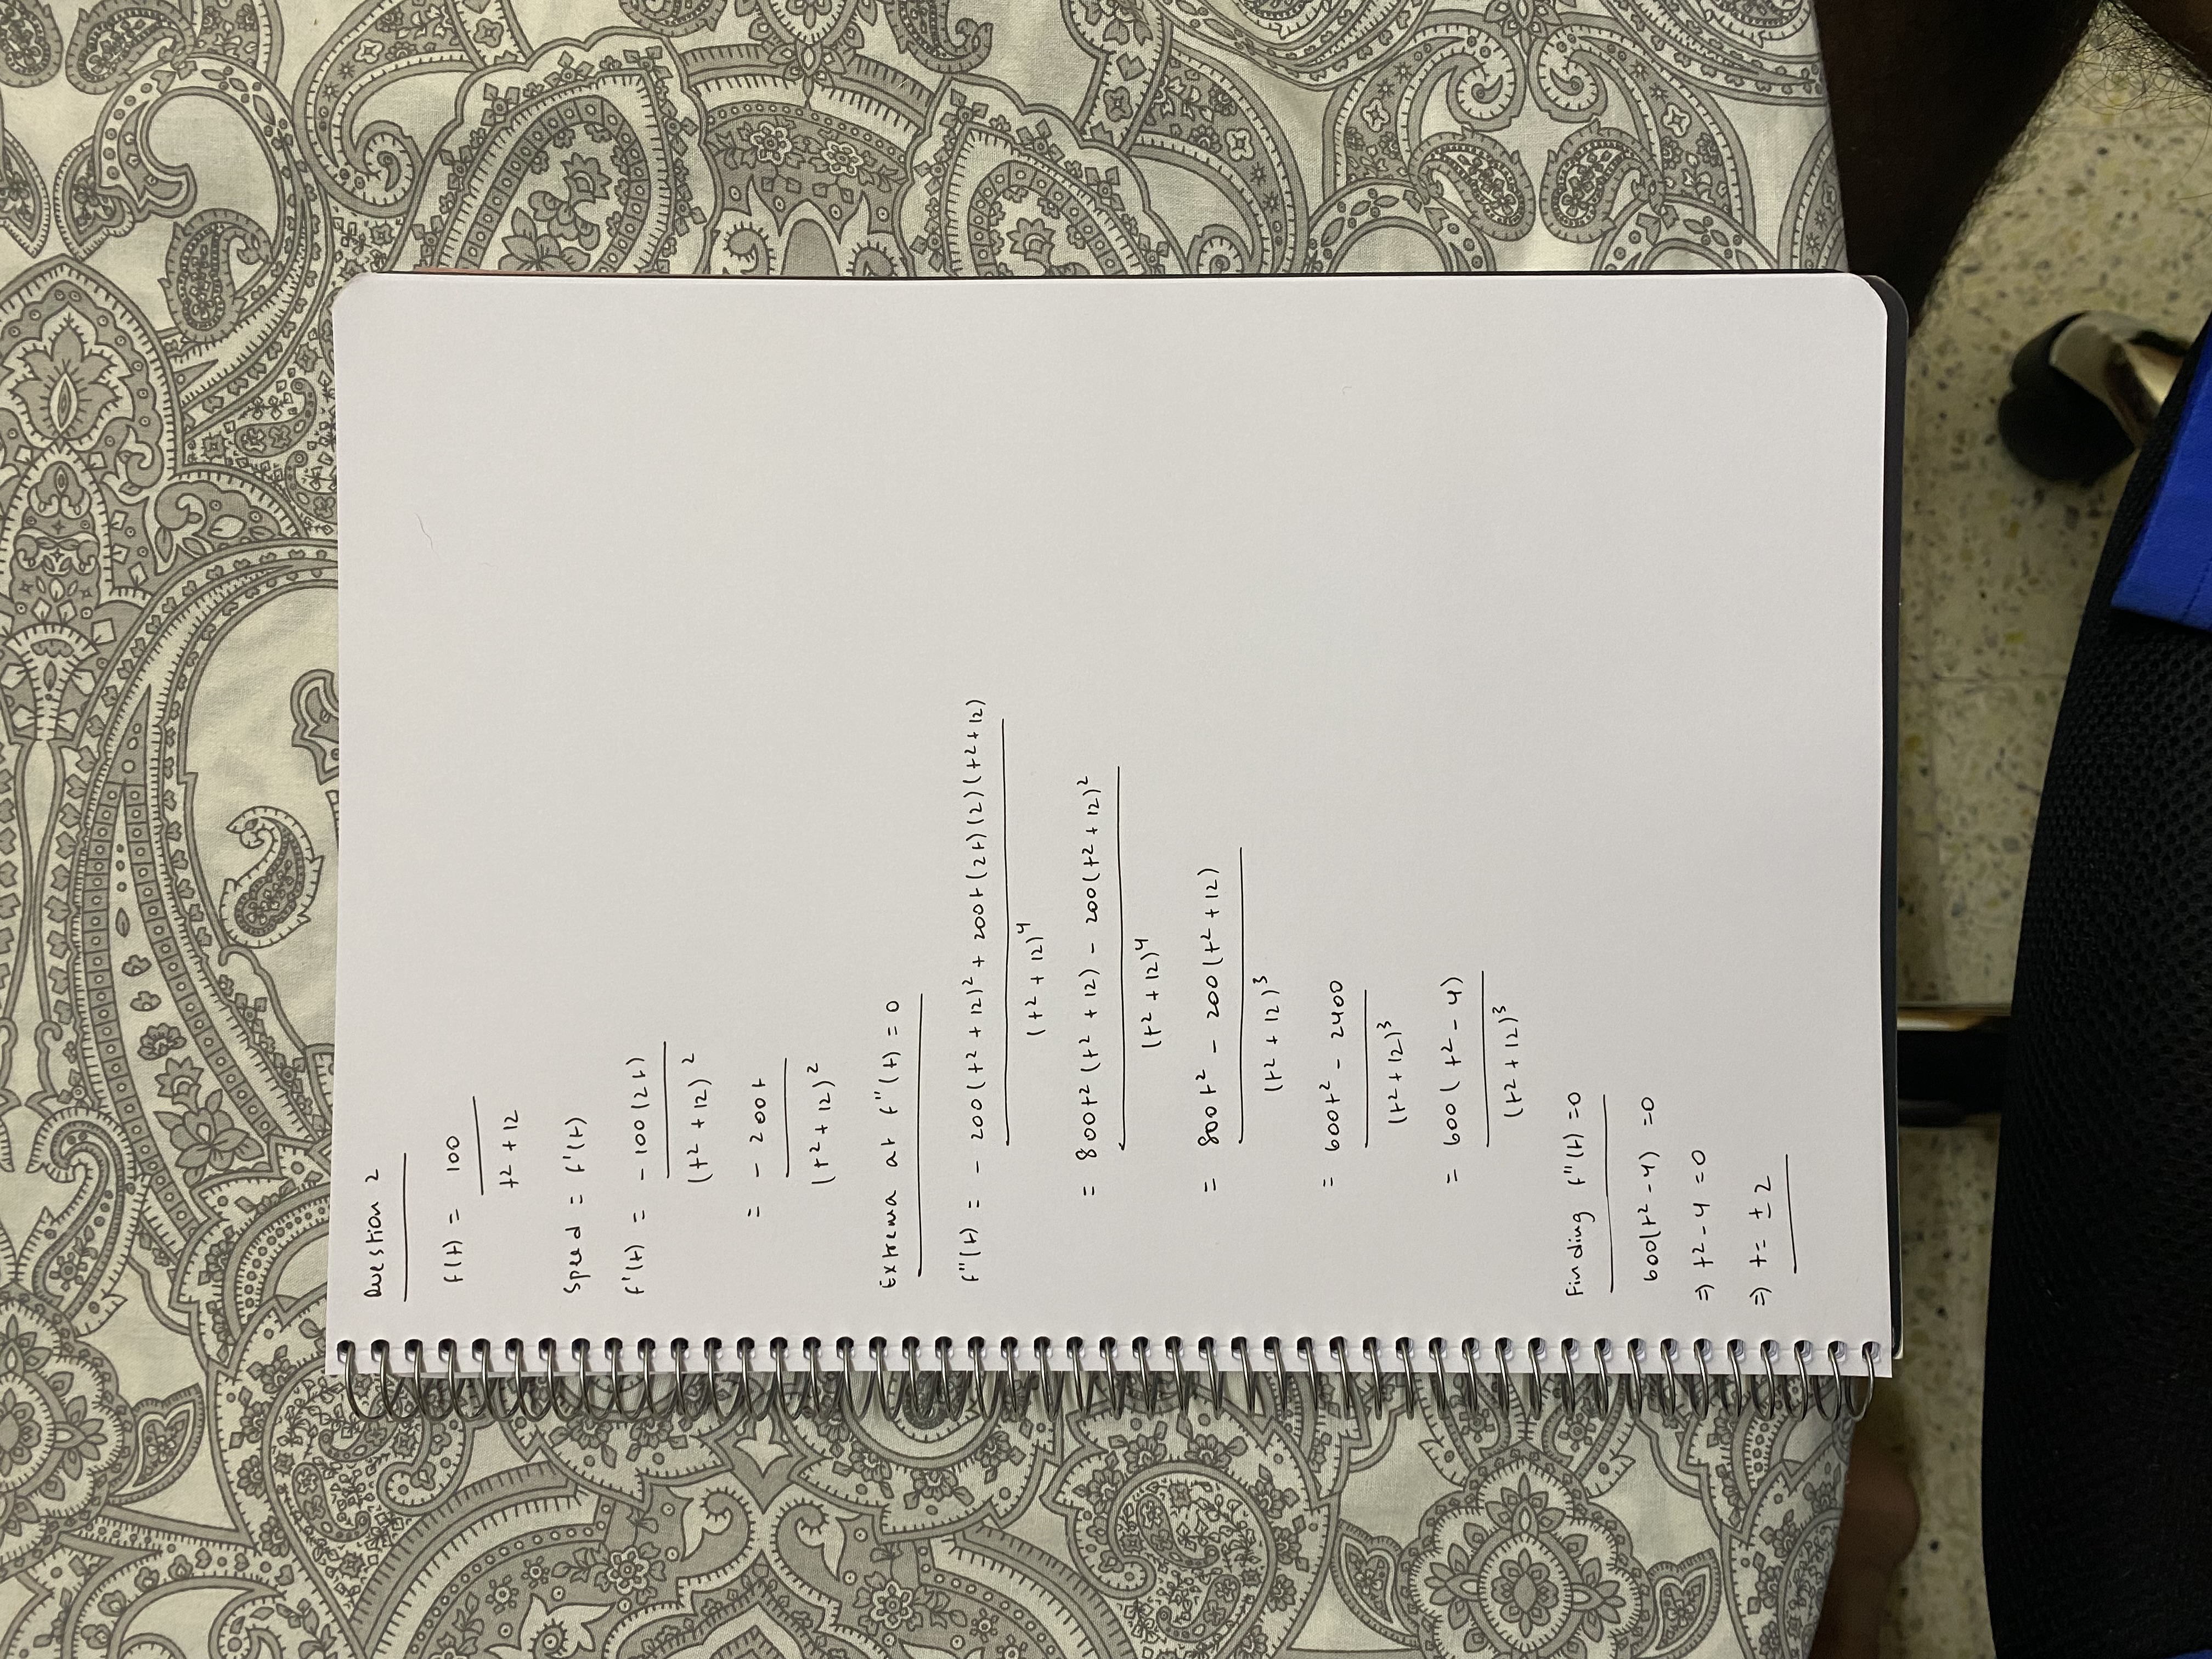 Question 2
f(t) = 100 / (t² + 12)
Speed = f'(t)
f'(t) = - 100(2t) / (t² + 12)²
= - 200t / (t² + 12)²
Extrema at f''(t) = 0
f''(t) = - 200(t² + 12)² + 200t(2t)(2)(t² + 12) / (t² + 12)⁴
= 800t²(t² + 12) - 200(t² + 12)² / (t² + 12)⁴
= 800t² - 200(t² + 12) / (t² + 12)³
= 600t² - 2400 / (t² + 12)³
= 600(t² - 4) / (t² + 12)³
Finding f''(t) = 0
600(t² - 4) = 0
⇒ t² - 4 = 0
⇒ t = ± 2